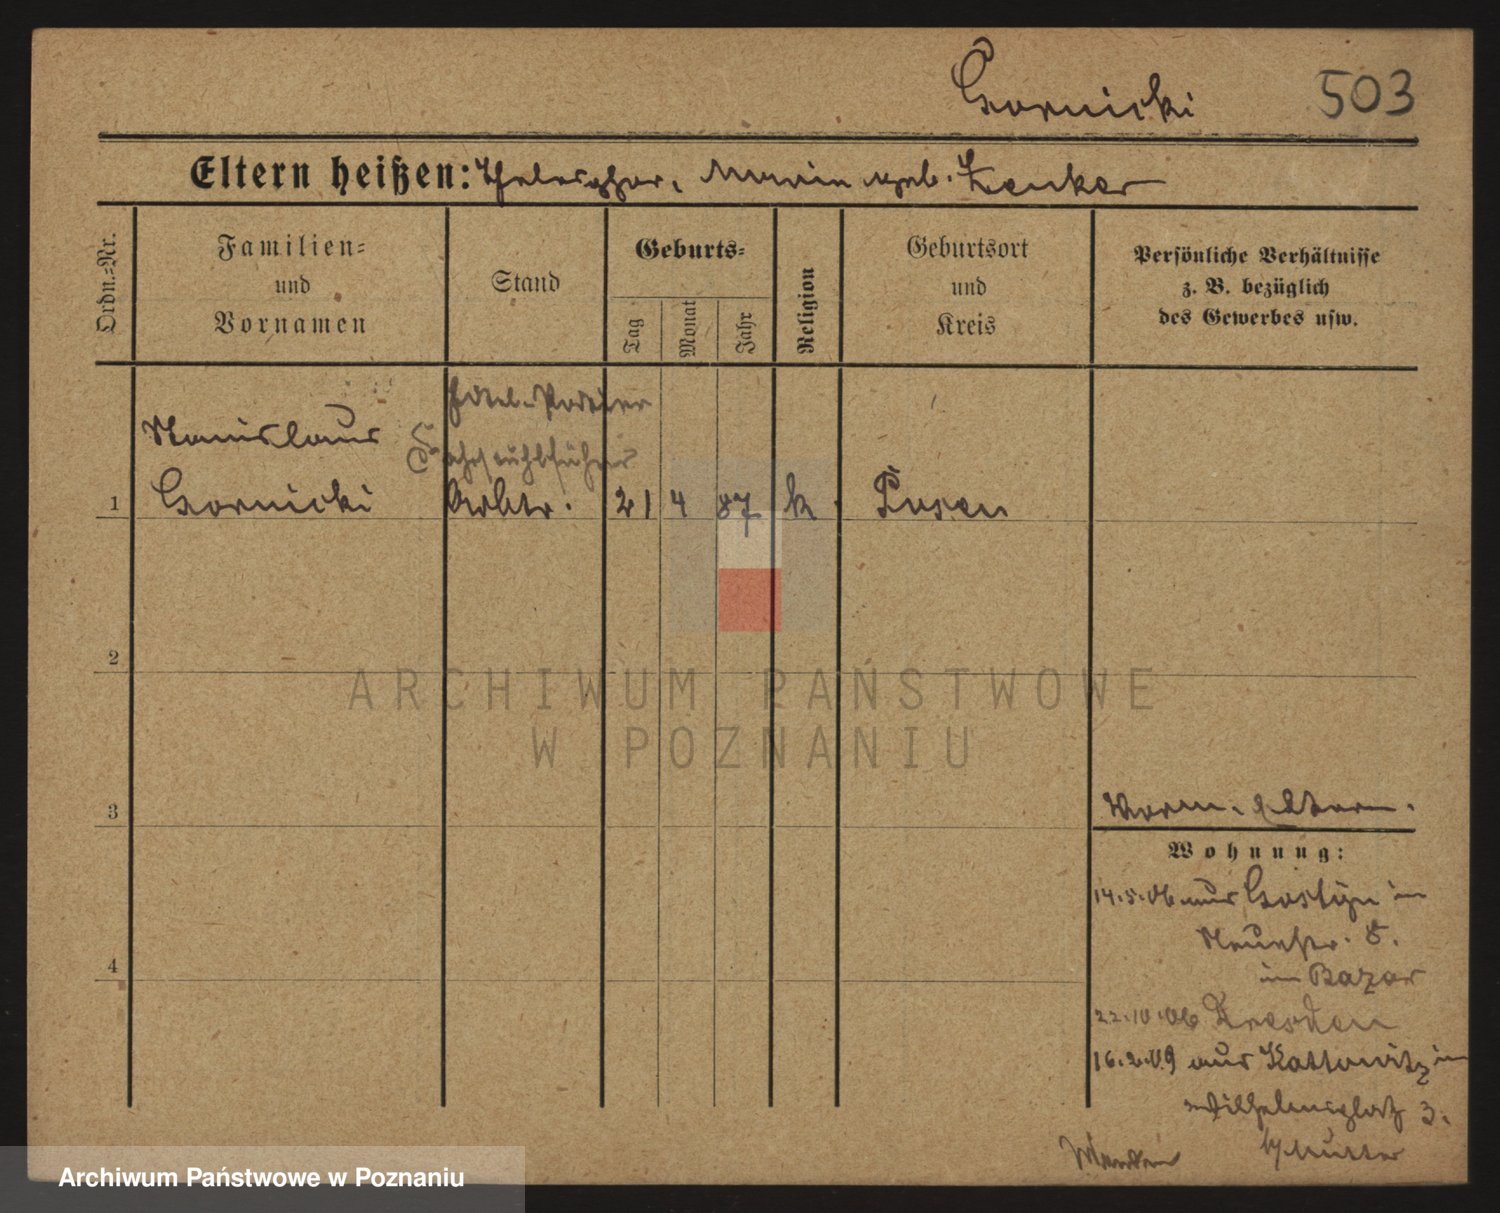 Gornicki 503
Eltern heißen: Thelesphor, Maria geb. Zenker
Ordn.=Nr.
Familien=
und
Vornamen
Stand
Geburts=
Tag
Monat
Jahr
Religion
Geburtsort
und
Kreis
Persönliche Verhältnisse
z. B. bezüglich
des Gewerbes usw.
Hôtel-Portier
Stanislaus Fahrstuhlführer
1 Gornicki Arbtr. 21 4 87 k. Posen
2
3
4
Worm.
Wohnung:
14.5.06 aus Gostyn in
Neuestr. 8.
im Bazar
22.10.06 Dresden
16.2.09 aus Kattowitz in
Wilhelmsplatz 3.
b/Mutter
ARCHIWUM PAŃSTWOWE
W POZNANIU
Archiwum Państwowe w Poznaniu